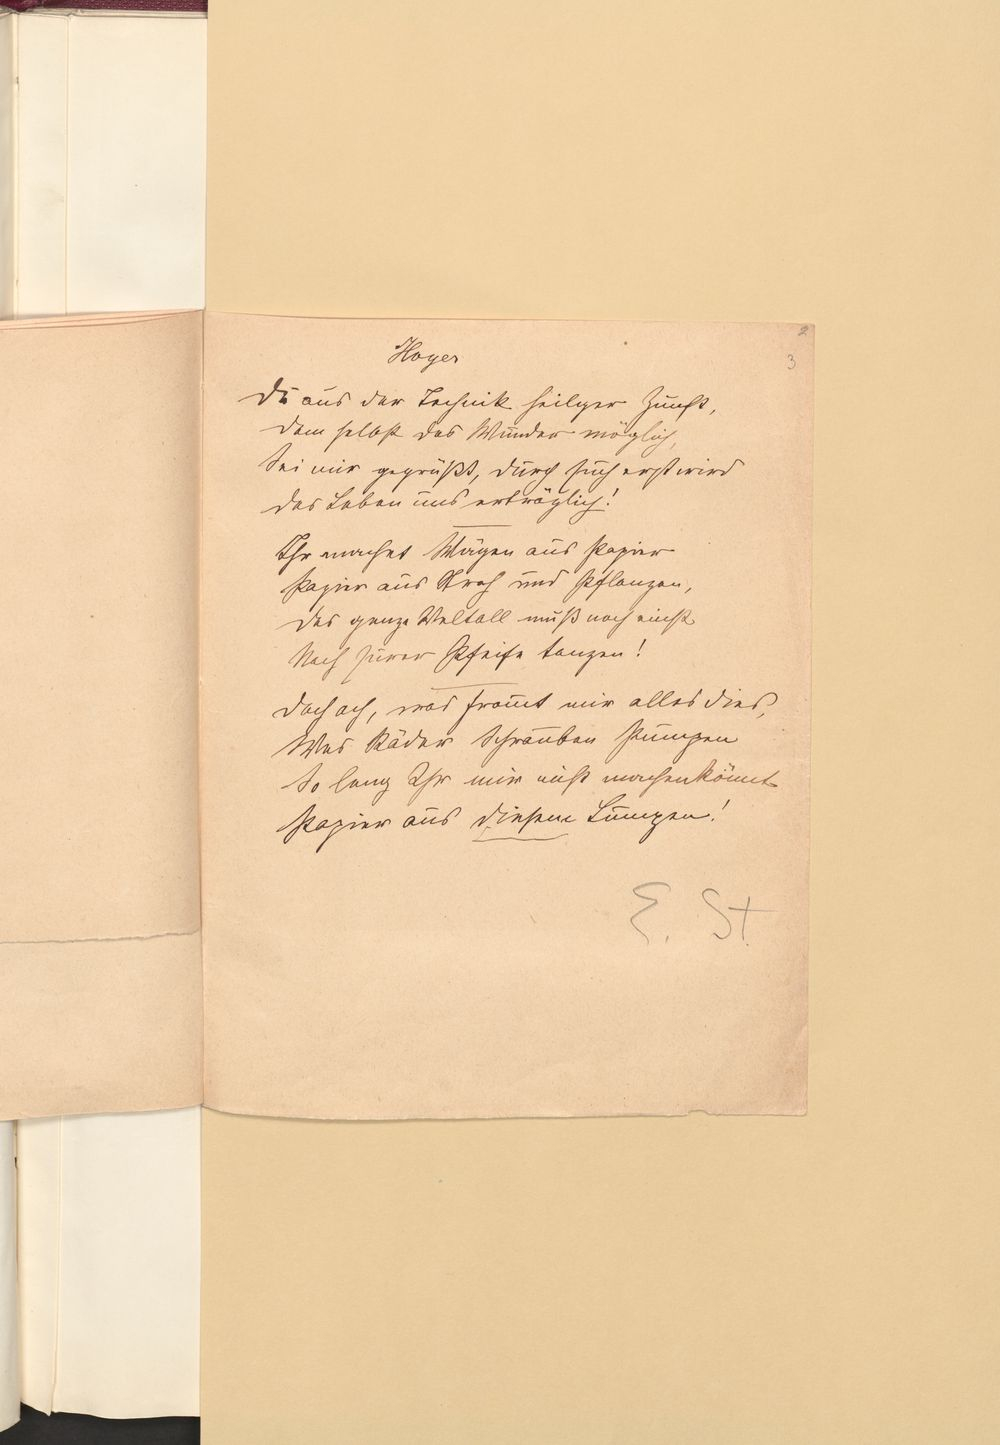 2
3
Hoyer
Du aus der Technik heilger Zunft,
dem selbst das Wunder möglich,
Sei mir gegrüßt, durch Euch erst wird
das Leben uns erträglich!
Ihr machet Wägen aus Papier
Papier aus Stroh und Pflanzen,
das ganze Weltall muß noch einst
Nach Eurer Pfeife tanzen!
Doch ach, was frommt mir alles dies,
Was Räder Schrauben Pumpen
So lang Ihr mir nicht machen könnt
Papier aus diesem Lumpen!
E. St.